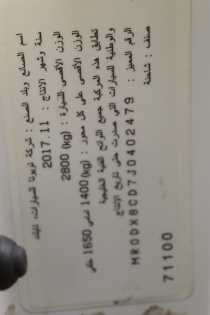 اسم الصانع وبلد الصنع : شركة تويوتا للسيارات، تايلاند
سنة وشهر الإنتاج : 2017.11
الوزن الأقصى للسيارة : 2800 (kg)
الوزن الأقصى على كل محور : 1400 (kg) أمامي 1650 خلفي
تطابق هذه المركبة جميع اللوائح الفنية الخليجية
والوطنية للسيارات التي صدرت حتى تاريخ الإنتاج
الرقم المميز : MR0DX8CD7J0402479
صنف : شاحنة
71100